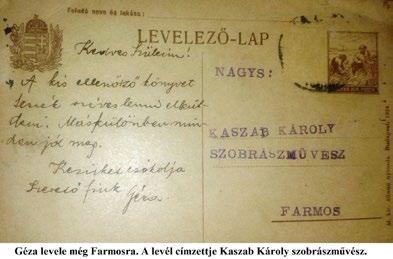 Feladó neve és lakása:
LEVELEZŐ-LAP
Kedves Szüleim!
A kis ellenőző könyvet
lenni elkül-
deni. Máskülönben min-
den jól meg.
csókolja
szerető fiuk
Géza
NAGYS:
KASZAB KÁROLY
SZOBRÁSZMŰVÉSZ
FARMOS
Géza levele még Farmosra. A levél címzettje Kaszab Károly szobrászművész.